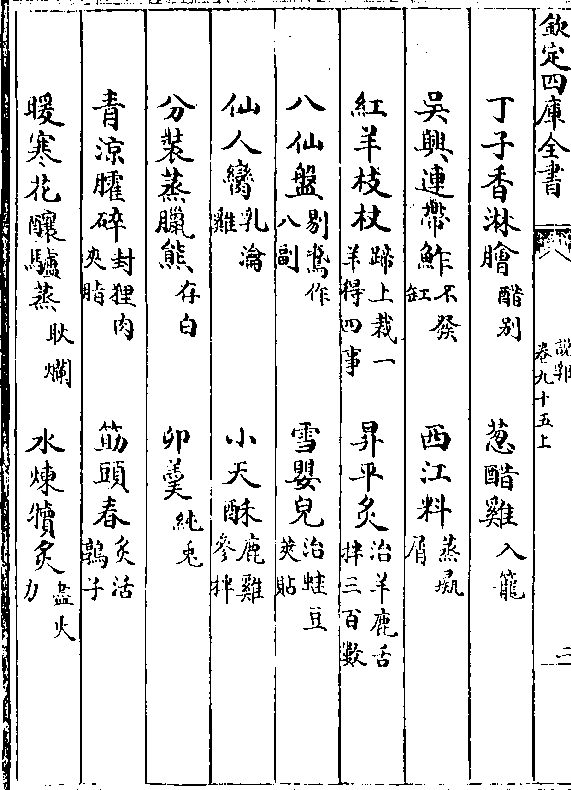 欽定四庫全書
說郛
卷九十五上
二
丁子香淋膾 醋别 葱醋雞 入籠
吳興連帶鮓 不發缸 西江料 蒸彘屑
紅羊枝杖 蹄上裁一羊得四事 昇平炙 治羊鹿舌拌三百數
八仙盤 剔鵞作八副 雪嬰兒 治蛙豆莢貼
仙人臠 乳瀹雞 小天酥 鹿雞參拌
分裝蒸臘熊 存白 卯羹 純兎
青涼臛碎 封狸肉夾脂 筯頭春 炙活鶉子
暖寒花釀驢蒸 耿爛 水煉犢炙 盡火力